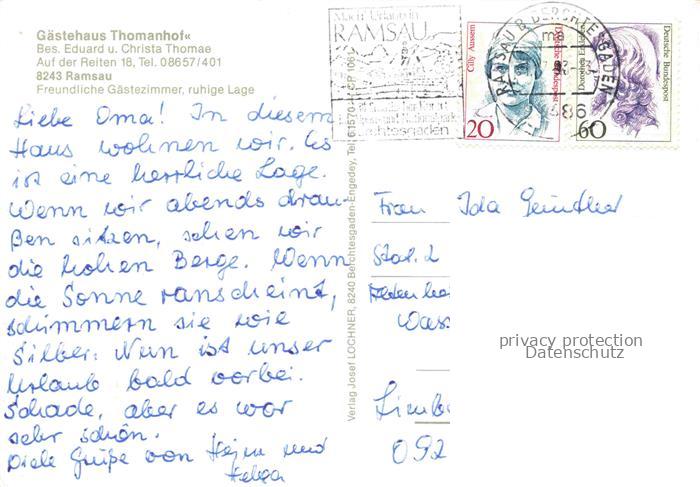 Gästehaus Thomanhof«
Bes. Eduard u. Christa Thomae
Auf der Reiten 18, Tel. 08657/401
8243 Ramsau
Freundliche Gästezimmer, ruhige Lage
Liebe Oma! In diesem
Haus wohnen wir. Es
ist eine herrliche Lage.
Wenn wir abends drau-
ßen sitzen, sehen wir
die hohen Berge. Wenn
die Sonne ranscheint,
schimmern sie wie
Silber. Nun ist unser
Urlaub bald vorbei.
Schade, aber es war
sehr schön.
Viele Grüße von Hejn und
Helga
Verlag Josef LOCHNER, 8240 Berchtesgaden-Engedey, Tel.
Mach Urlaub in
RAMSAU
Berchtesgaden
RAMSAU B. BERCHTESGADEN
86
Cilly Aussem
Deutsche Bundespost
20
Deutsche Bundespost
60
Frau Ida Günther
Stat. 2
Wass
Limb
092
privacy protection
Datenschutz